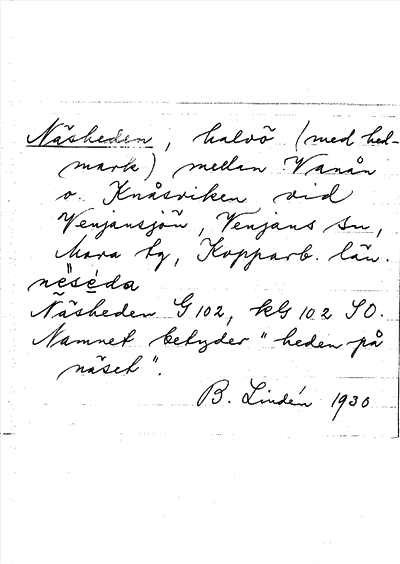 Näsheden, halvö (med hed-
mark) mellan Vanån
o. Knåsviken vid
Venjansjön, Venjans sn,
Mora tg, Kopparb. län.
nëséda
Näsheden G 102, kG 102 SO.
Namnet betyder "heden på
näset".
B. Lindén 1930